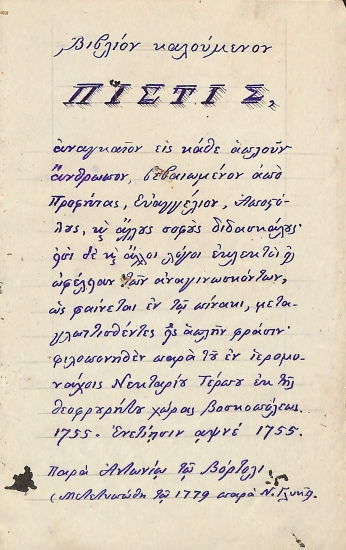 Βιβλίον καλούμενον
ΠΙΣΤΙΣ,
ἀναγκαῖον εἰς κάθε ἁπλοῦν
ἄνθρωπον, βεβαιωμένον ἀπὸ
Προφήτας, Εὐαγγέλιον, Ἀποστό-
λους, κὶ ἄλλους σοφοὺς διδασκάλους·
ἔτι δὲ κὶ ἄλλοι λόγοι ἐκλεκτοὶ
ὠφέλειαν τῶν ἀναγινωσκόντων,
ὡς φαίνεται ἐν τῷ πίνακι, μετα-
γλωττισθέντες εἰς ἁπλῆν φράσιν·
φιλοπονηθὲν παρὰ τοῦ ἐν ἱερομο-
νάχοις Νεκταρίου Τέρπου ἐκ τῆς
θεοφρουρήτου χώρας Βοσκοπόλεως.
1755. Ἐνετίῃσιν αψνέ 1755.
παρὰ Ἀντωνίῳ τῷ Βόρτολι
(Μετετυπώθη τῷ 1779 παρὰ Ν. Γλυκῆ.